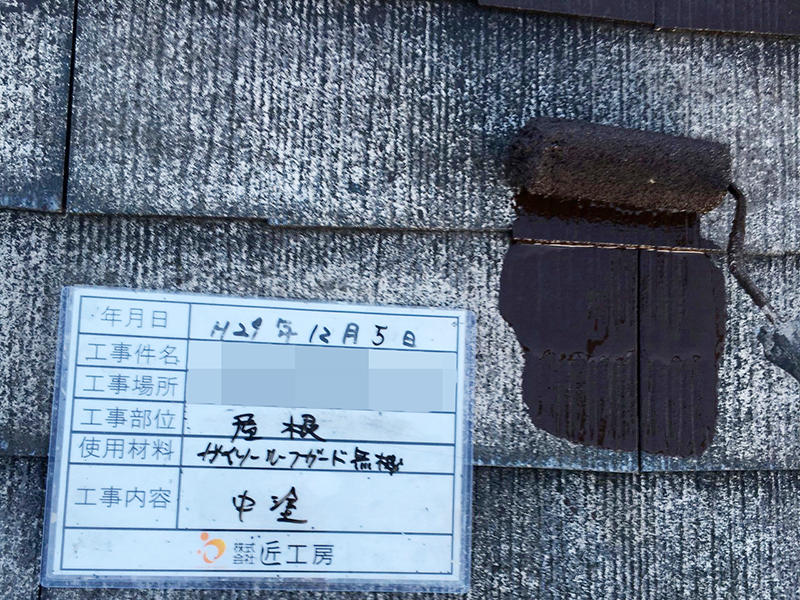 年月日 H29年12月5日
工事件名
工事場所
工事部位 屋根
使用材料 ガイソールーフガード無機
工事内容 中塗
株式会社 匠工房